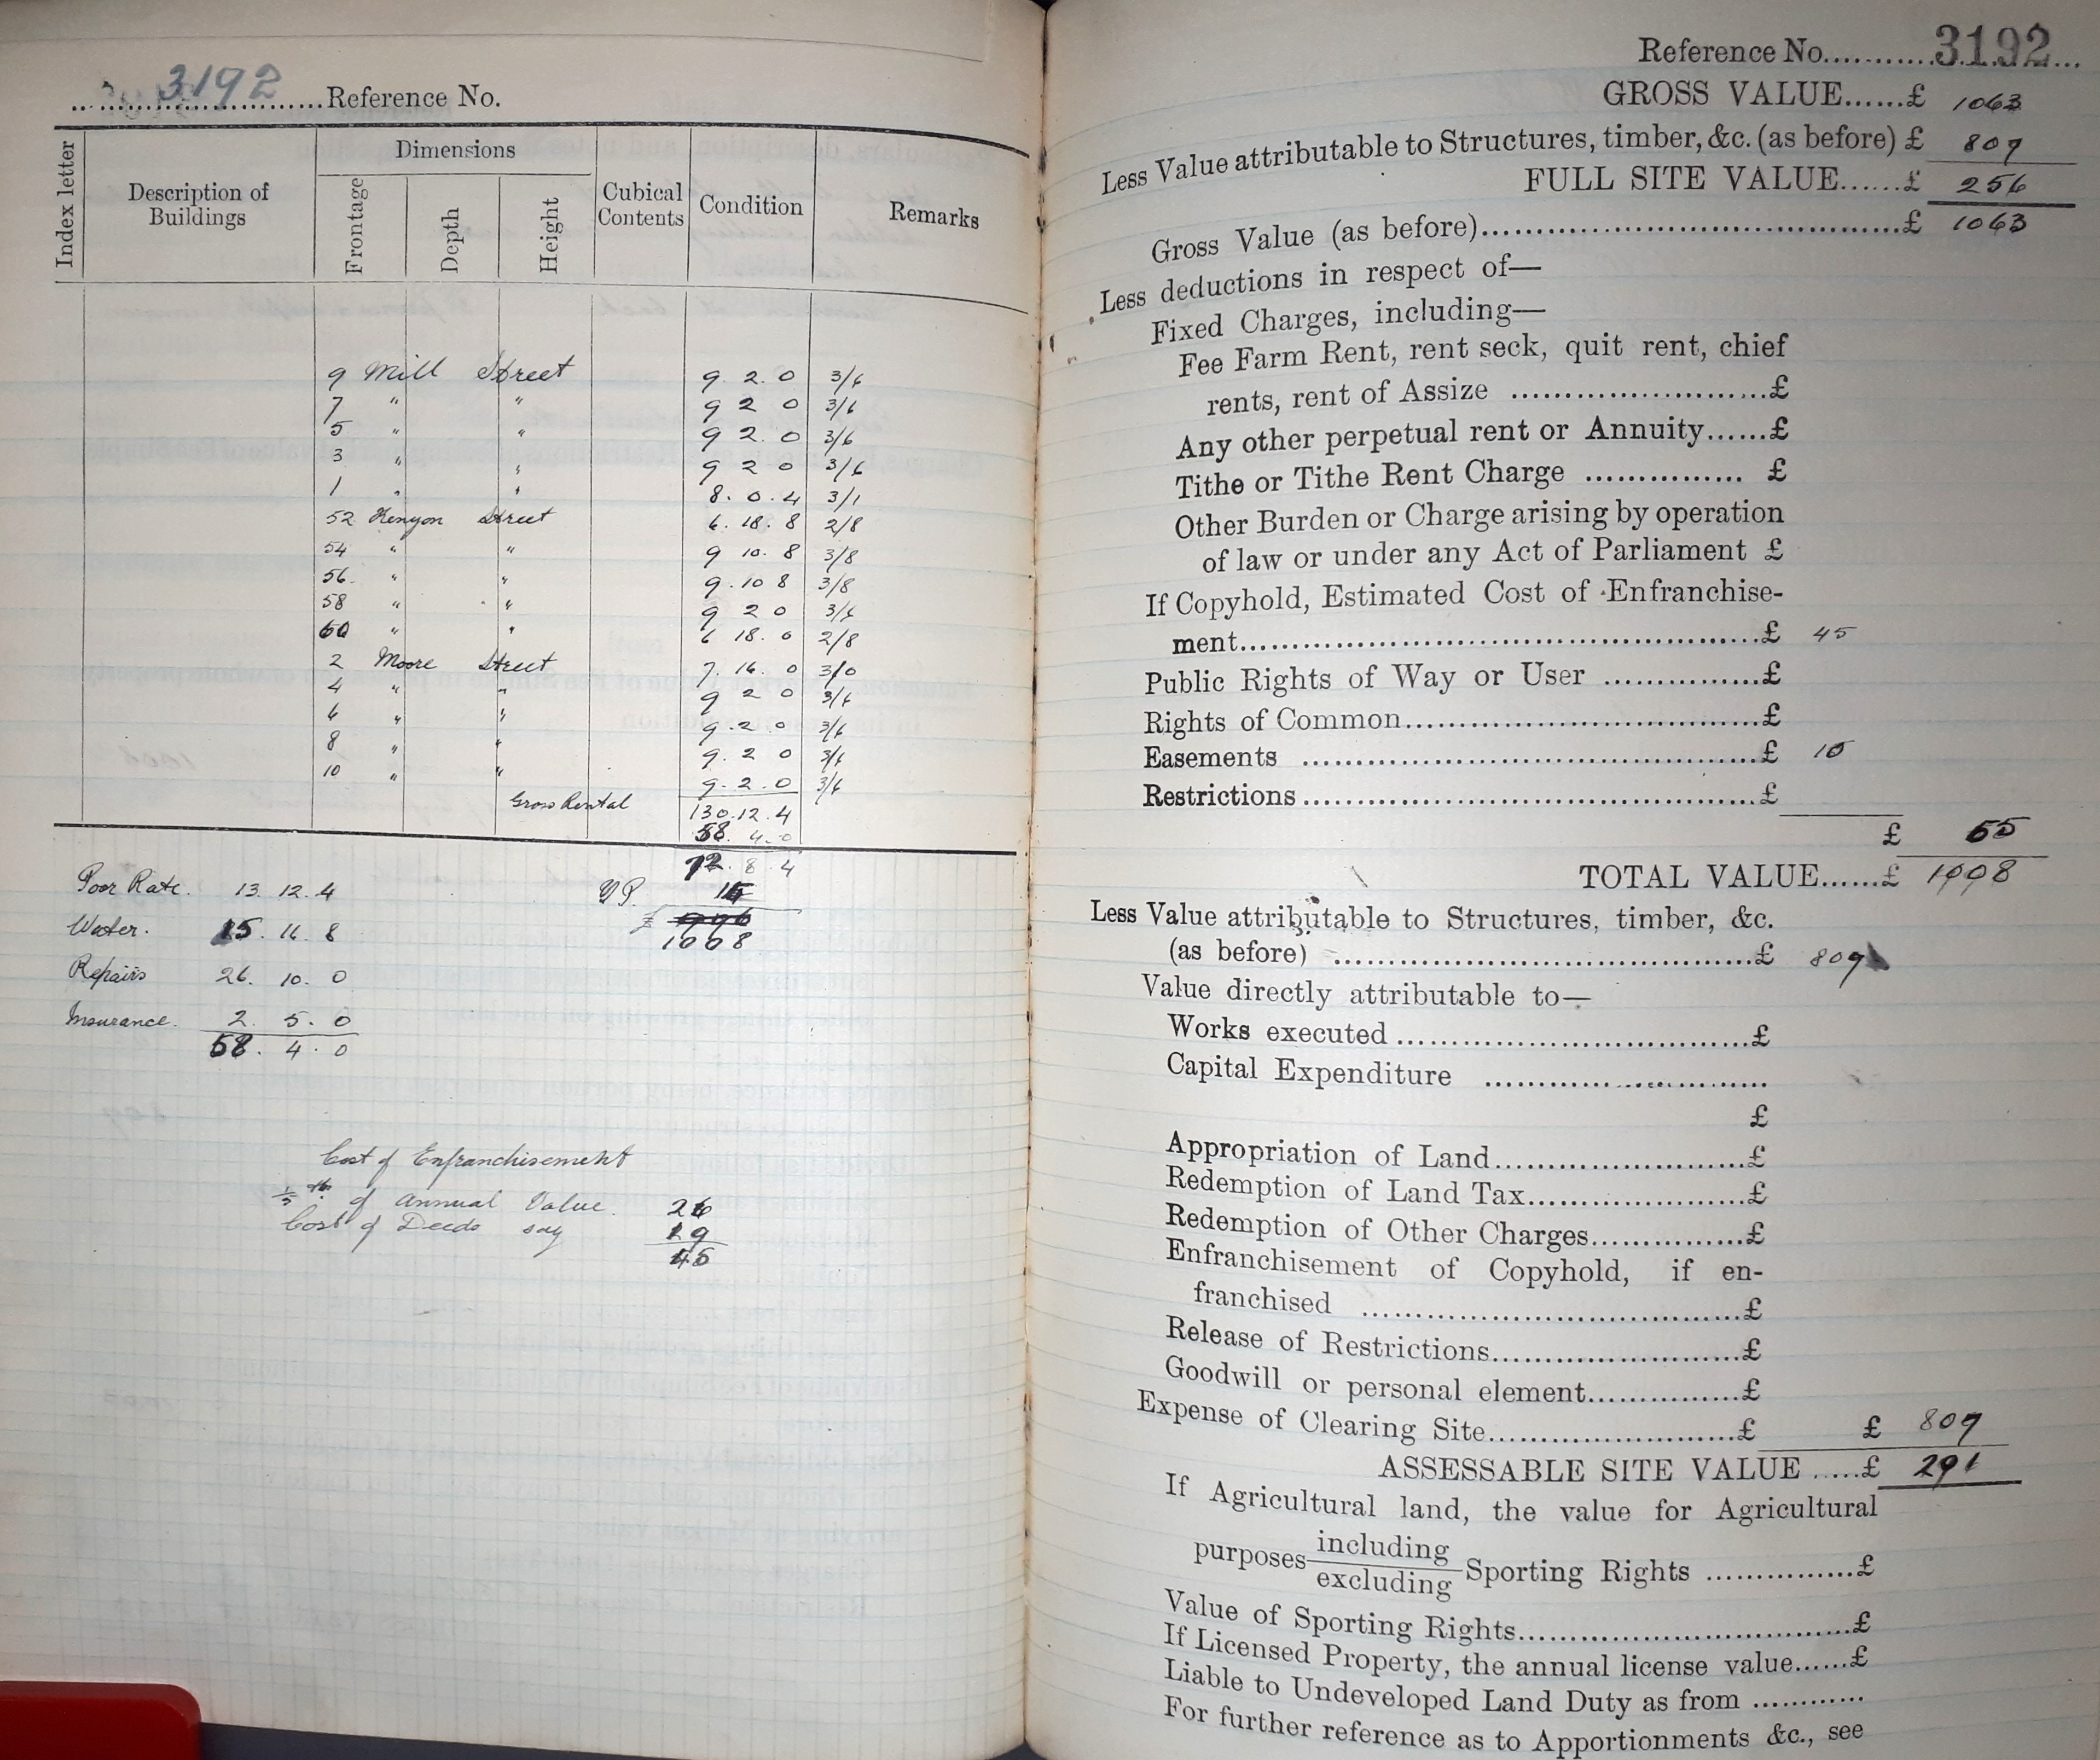 3192 Reference No.
Index letter
Description of Buildings
Dimensions
Frontage
Depth
Height
Cubical Contents
Condition
Remarks
9 Mill Street 9. 2. 0 3/6
7 " " 9 2 0 3/6
5 " " 9 2. 0 3/6
3 " " 9 2 0 3/6
1 " " 8. 0. 4 3/1
52 Kenyon Street 6. 18. 8 2/8
54 " " 9 10. 8 3/8
56. " " 9. 10 8 3/8
58 " " 9 2 0 3/6
60 " " 6 18. 0 2/8
2 Moore Street 7. 16. 0 3/0
4 " " 9 2 0 3/6
6 " " 9. 2. 0 3/6
8 " " 9. 2 0 3/6
10 " " 9. 2. 0 3/6
Gross Rental 130. 12. 4
58. 4. 0
72. 8. 4
Y P.
1008
Poor Rate. 13. 12. 4
Water. 15. 16. 8
Repairs 26. 10. 0
Insurance. 2. 5. 0
58. 4. 0
Cost of Enfranchisement
1/5 th of Annual Value. 26
Cost of Deeds say 19
45
Reference No............3192...
GROSS VALUE......£ 1063
Less Value attributable to Structures, timber, &c. (as before) £ 807
FULL SITE VALUE......£ 256
Gross Value (as before)..........£ 1063
Less deductions in respect of—
Fixed Charges, including—
Fee Farm Rent, rent seck, quit rent, chief
rents, rent of Assize ..........£
Any other perpetual rent or Annuity......£
Tithe or Tithe Rent Charge ............... £
Other Burden or Charge arising by operation
of law or under any Act of Parliament £
If Copyhold, Estimated Cost of Enfranchise-
ment..........£ 45
Public Rights of Way or User ...............£
Rights of Common..........£
Easements ..........£ 10
Restrictions..........£
£ 55
TOTAL VALUE......£ 1008
Less Value attributable to Structures, timber, &c.
(as before) ..........£ 807
Value directly attributable to—
Works executed ..........£
Capital Expenditure ..........
£
Appropriation of Land..........£
Redemption of Land Tax..........£
Redemption of Other Charges...............£
Enfranchisement of Copyhold, if en-
franchised ..........£
Release of Restrictions..........£
Goodwill or personal element...............£
Expense of Clearing Site..........£ £ 807
ASSESSABLE SITE VALUE .....£ 201
If Agricultural land, the value for Agricultural
purposes including
excluding Sporting Rights ...............£
Value of Sporting Rights..........£
If Licensed Property, the annual license value......£
Liable to Undeveloped Land Duty as from ............
For further reference as to Apportionments &c., see